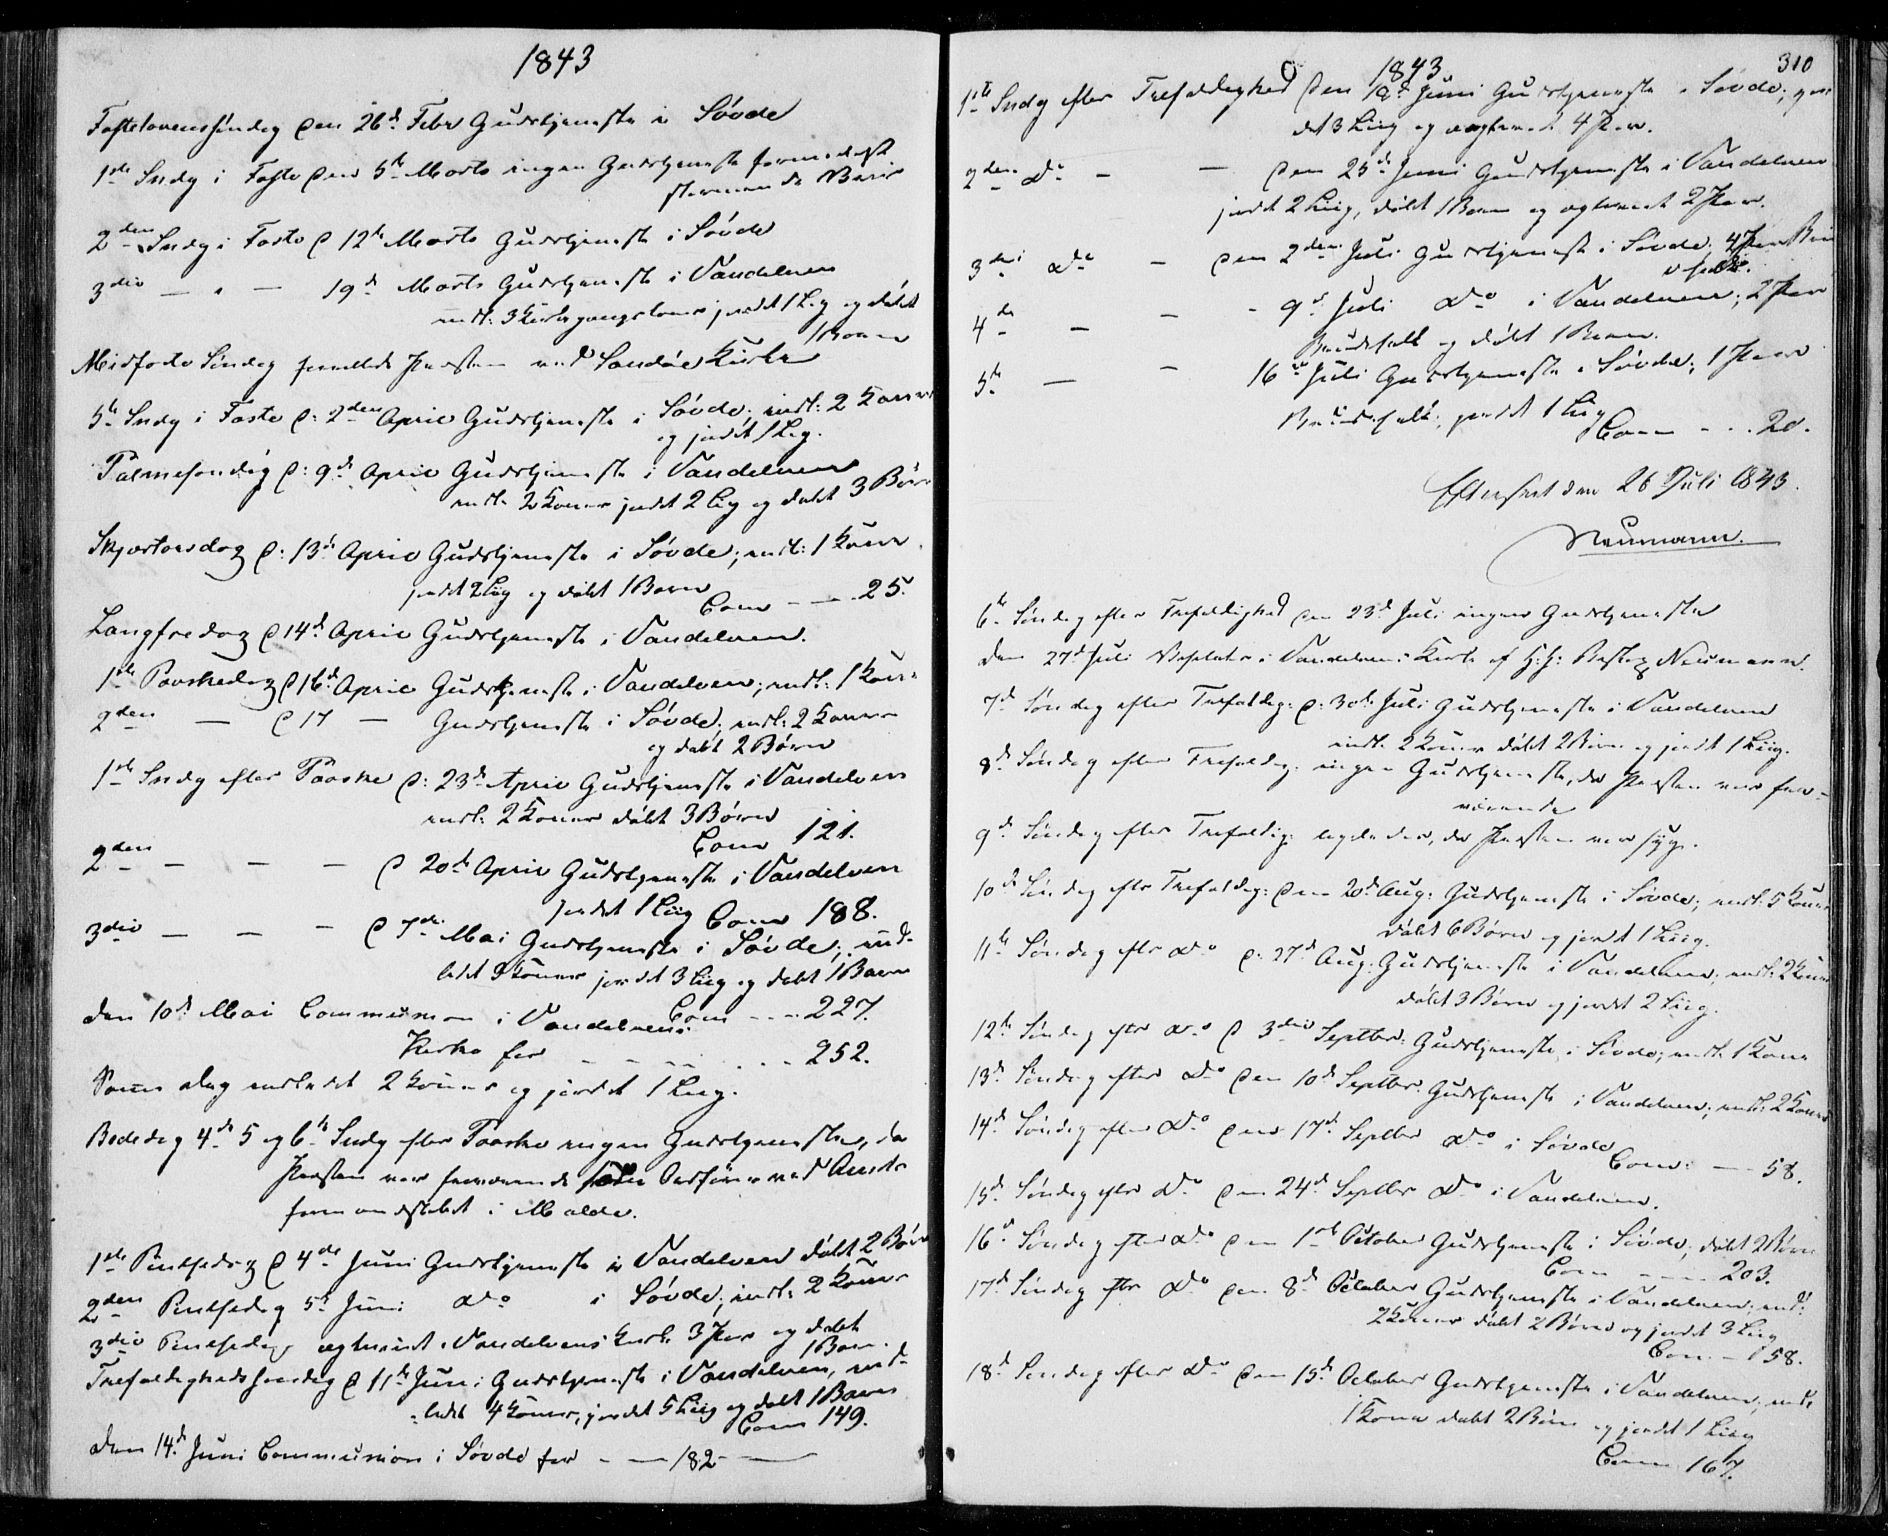 1843
Fastelavenssøndag den 26d. Febr Gudstjeneste i Søvde
1ste Sndg i Faste den 5te Marts ingen Gudstjeneste formedelst
stormende Veir
2den Sndg i Faste d 12te Marts Gudstjeneste i Søvde
3die — " — 19d Marts Gudstjeneste i Vandelven
indl: 3 Kirkegangskoner jordet 1 Lig og døbt
1 Barn
Midfaste Søndag Præsten ved Sandøe Kirke
5te Sndg i Faste d: 2den April Gudstjeneste i Søvde; indl: 2 Koner
og jordet 1 Lig.
Palmesøndag d: 9de April Gudstjeneste i Vandelven
indl. 2 Koner jordet 2 Lig og døbt 3 Børn
Skjærtorsdag d: 13de April Gudstjeneste i Søvde; indl: 1 Kone
jordet 2 Liig og døbt 1 Barn
Com — — 25.
Langfredag d 14d April Gudstjeneste i Vandelven.
1ste Paaskedag d 16d April Gudstjeneste i Vandelven; indl: 1 Kone
2den — d 17 — Gudstjeneste i Søvde; indl: 2 Koner
og døbt 2 Børn
1ste Sndg efter Paaske d: 23de April Gudstjeneste i Vandelven
indl: 2 Koner døbt 3 Børn
Com 121.
2den — — — d 20de April Gudstjeneste i Vandelven
jordet 1 Liig Com 188.
3die — — — d 7de Mai Gudstjeneste i Søvde; ind-
ledet 3 Koner jordet 3 Liig og døbt 1 Barn
Com - - - 227.
den 10de Mai Communion i Vandelvens
Kirke for - - - - 252.
Samme dag indledet 2 Koner og jordet 1 Liig.
Bededag 4de 5 og 6te Sndg efter Paaske ingen Gudstjeneste, da
Præsten var fraværende ved Amts
formandskabet i Molde.
1ste Pintsedag d 4de Juni Gudstjeneste i Vandelven døbt 2 Børn
2den Pintsedag 5te Juni do i Søvde; indl: 2 Koner
3die Pintsedag ægteviet i Vandelvens Kirke 3 Par og døbt
1 Barn.
Trefoldighedssøndag d 11te Juni Gudstjeneste i Vandelven, ind-
ledet 4 Koner, jordet 5 Liig og døbt 1 Barn
Com 149.
den 14d. Juni Communion i Søvde for - — 182 —
310
1843.
1ste Sndg efter Trefoldighed den Juni Gudstjeneste i Søvde; jor-
det 3 Liig og ægteviet 4 Par.
2den do — — den 25de Juni Gudstjeneste i Vandelven
jordet 2 Liig, døbt 1 Barn og ægteviet 2 Par.
3die do — den 2den Juli Gudstjeneste i Søvde. 4 Par Bru
defolk.
4de — — - 9d Juli do i Vandelven; 2 Par
Brudefolk og døbt 1 Barn.
5te — — 16de Juli Gudstjeneste i Søvde; 1 Par
Brudefolk; jordet 1 Liig
Com - - - 20.
Efterseet den 26 Juli 1843.
Neumann.
6te Søndag efter Trefoldighed den 23d Juli ingen Gudstjeneste
den 27d Juli Visitats i Vandelvens Kirke af H: H: Biskop Neumann.
7de Søndag efter Trefoldig: d: 30te Juli Gudstjeneste i Vandelven
indl. 2 Koner døbt 2 Børn og jordet 1 Liig.
8de Søndag efter Trefoldig: ingen Gudstjeneste, da Præsten var fra-
værende
9de Søndag efter Trefoldig: ligeledes, da Præsten var syg.
10de Søndag eftr Trefoldig: den 20d Aug: Gudstjeneste i Søvde; indl: 5 Koner
døbt 6 Børn og jordet 1 Liig.
11te Søndag eftr do d: 27d Aug: Gudstjeneste i Vandelven; indl: 2 Koner
døbt 3 Børn og jordet 2 Liig.
12te Søndag eftr do d 3die Septbr: Gudstjeneste i Søvde; indl: 1 Kone
13d Søndag efter do den 10d Septbr. Gudstjeneste i Vandelven; indl: 2 Koner
14d Søndag efter do den 17d Septbr do i Søvde
Com: — — 58.
15d. Søndag eftr do den 24d Septbr do i Vandelven.
16d Søndag efter do den 1ste October Gudstjeneste i Søvde; døbt 2 Børn
Com — — 203.
17d Søndag eftr do den 8d October Gudstjeneste i Vandelven; indl:
2 Koner døbt 2 Børn og jordet 3 Liig
Com — 158.
18d Søndag efter do den 15de October Gudstjeneste i Vandelven; indl:
1 Kone døbt 2 Børn og jordet 1 Liig
Com 167.